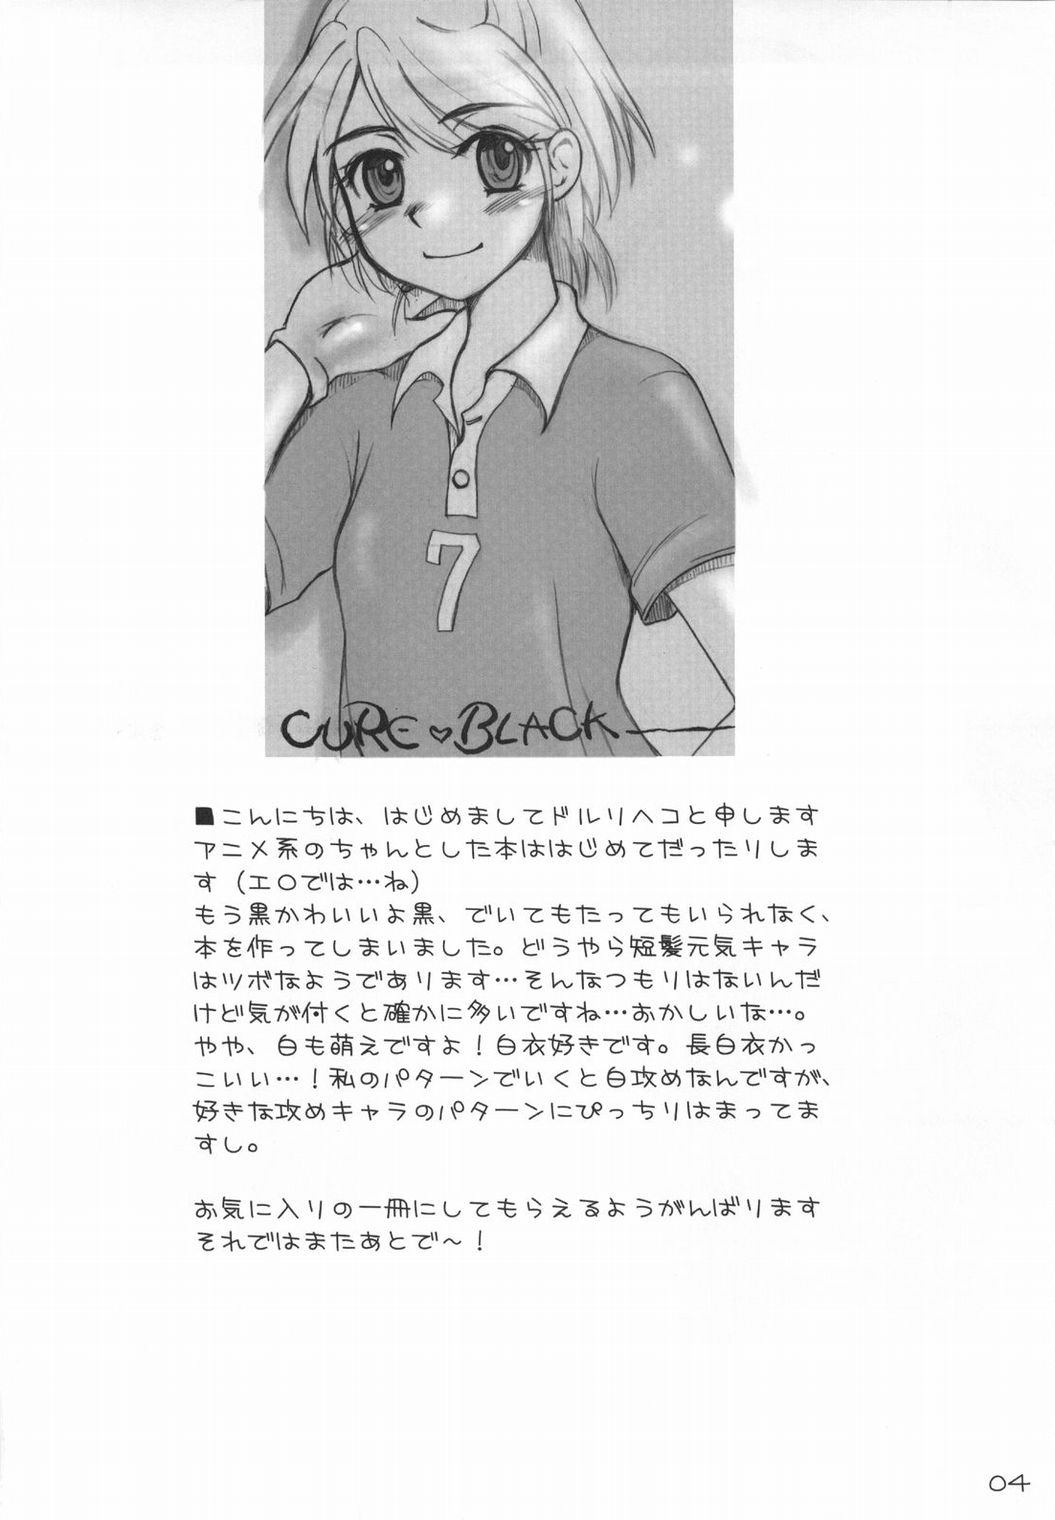 7
CURE♥BLACK
■こんにちは、はじめましてドルリヘコと申します
アニメ系のちゃんとした本ははじめてだったりしま
す（エ〇では…ね）
もう黒かわいいよ黒、でいてもたってもいられなく、
本を作ってしまいました。どうやら短髪元気キャラ
はツボなようであります…そんなつもりはないんだ
けど気が付くと確かに多いですね…おかしいな…。
やや、白も萌えですよ！白衣好きです。長白衣かっ
こいい…！私のパターンでいくと白攻めなんですが、
好きな攻めキャラのパターンにぴっちりはまってま
すし。
お気に入りの一冊にしてもらえるようがんばります
それではまたあとで～！
04